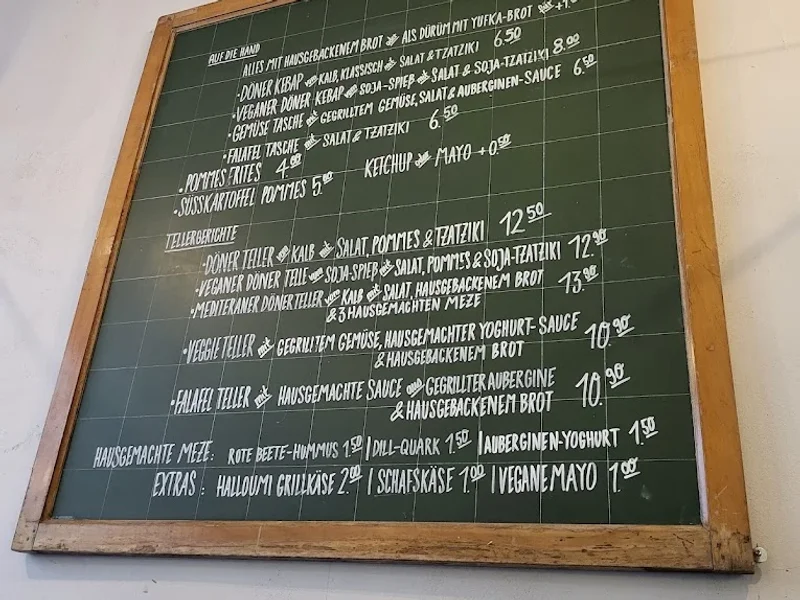 AUF DIE HAND
ALLES MIT HAUSGEBACKENEM BROT ALS DÜRÜM MIT YUFKA-BROT
• DÖNER KEBAP vom KALB, KLASSISCH mit SALAT & TZATZIKI 6.50
• VEGANER DÖNER KEBAP vom SOJA-SPIEß mit SALAT & SOJA-TZATZIKI 8.00
• GEMÜSE TASCHE mit GEGRILLTEM GEMÜSE, SALAT & AUBERGINEN-SAUCE 6.50
• FALAFEL TASCHE mit SALAT & TZATZIKI 6.50
• POMMES FRITES 4.00 KETCHUP MAYO +0.50
• SÜSSKARTOFFEL POMMES 5.00
TELLERGERICHTE
• DÖNER TELLER vom KALB mit SALAT, POMMES & TZATZIKI 12.50
• VEGANER DÖNER TELLE vom SOJA-SPIEß mit SALAT, POMMES & SOJA-TZATZIKI 12.90
• MEDITERANER DÖNERTELLER vom KALB mit SALAT, HAUSGEBACKENEM BROT 13.90
& 3 HAUSGEMACHTEN MEZE
• VEGGIE TELLER mit GEGRILLTEM GEMÜSE, HAUSGEMACHTER YOGHURT-SAUCE 10.90
& HAUSGEBACKENEM BROT
• FALAFEL TELLER mit HAUSGEMACHTE SAUCE und GEGRILLTER AUBERGINE 10.90
& HAUSGEBACKENEM BROT
HAUSGEMACHTE MEZE: ROTE BEETE-HUMMUS 1.50 | DILL-QUARK 1.50 | AUBERGINEN-YOGHURT 1.50
EXTRAS: HALLOUMI GRILLKÄSE 2.00 | SCHAFSKÄSE 1.00 | VEGANE MAYO 1.00